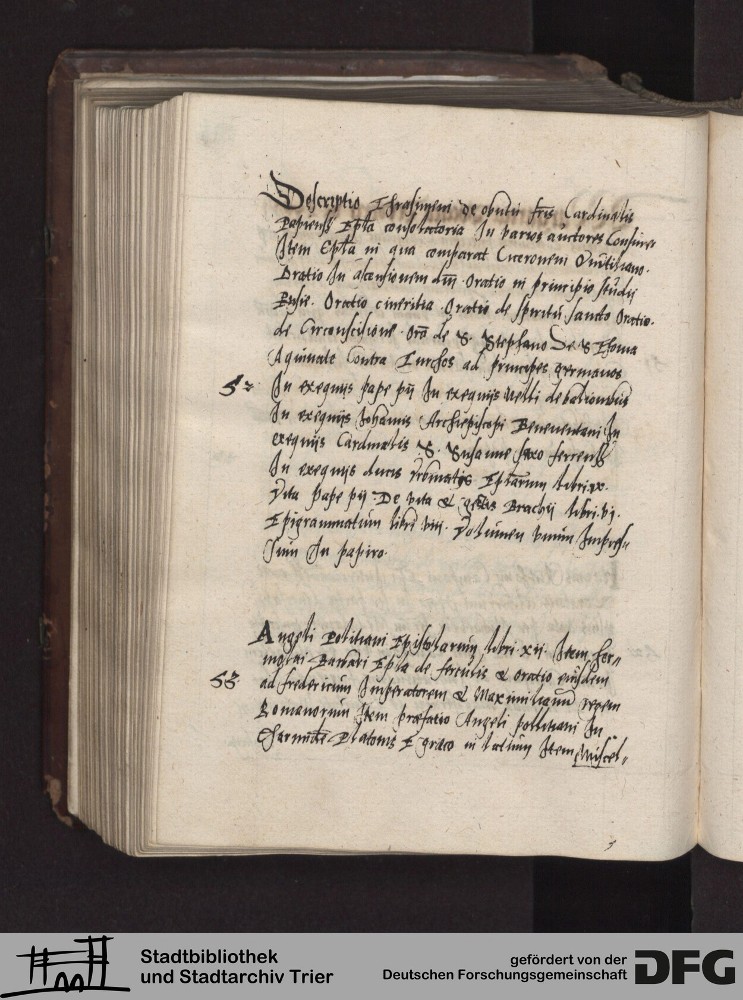 Descriptio Thrasimeni de obitu fris Cardinalis
Papiensis Epla consolatoria In parvos auctores
Item Epla in qua comparat Ciceronem Quintiliano.
Oratio In ascensionem dni. oratio in principio studii
Oratio cineritia. Oratio de spiritu sancto Oratio.
de Circonscisione. oro de S. Stephano De S Thoma
Aquinate Contra Turchos ad principes germanos
52 In exequijs pape pij In exequijs Nelli de balionibus
In exequijs Johannis Archiepiscopi Beneventani In
exequijs Cardinalis S. Susanne saxo ferrens
In exequijs ducis Urbinatis Eplarum libri
Vita pape pij. De vita & gestis Brachij libri vj.
Epigrammatum libri viii. Volumen unum Impres-
sum In papiro.
Angeli Politiani Epistolarum libri xij. Item her-
molai Barbari Epla de ferculis & oratio eiusdem
53. ad fredericum Imperatorem & Maximilianum regem
Romanorum Item præfatio Angeli pollitiani In
Charmide Platonis E græco in latium Item Miscel-
Stadtbibliothek
und Stadtarchiv Trier
gefördert von der
Deutschen Forschungsgemeinschaft
DFG